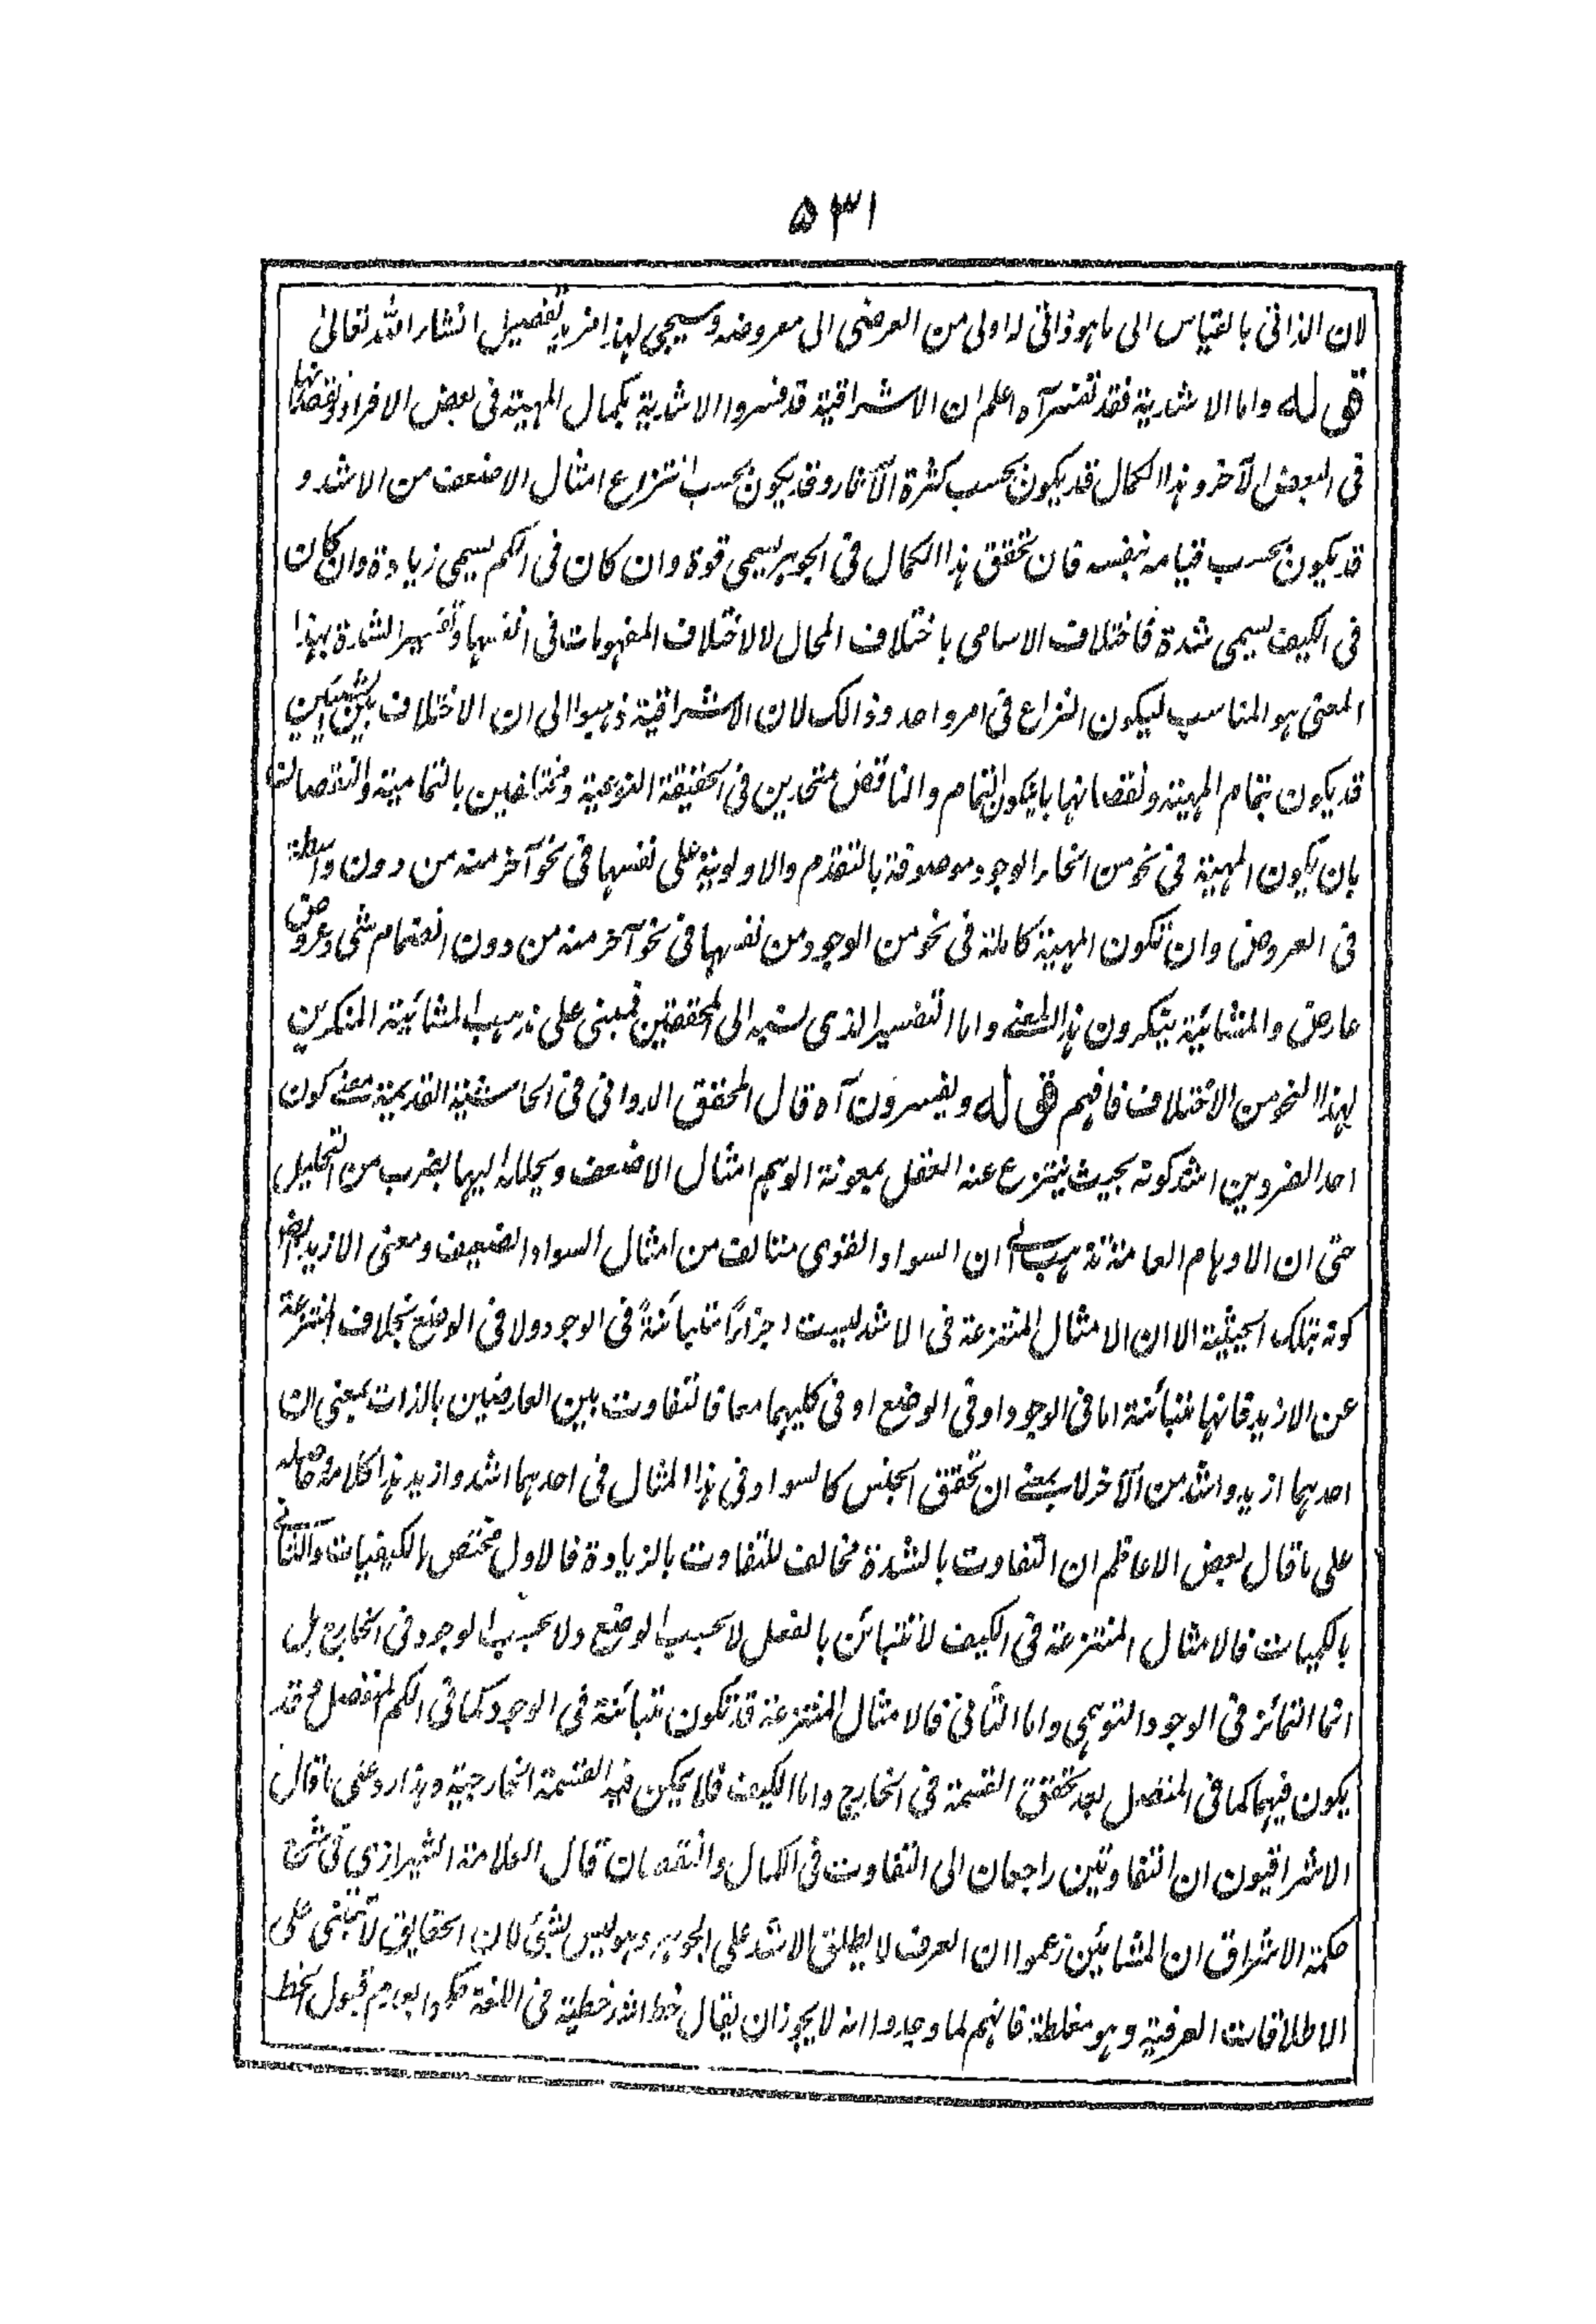 ٥٣١
لان الذاتى بالقياس الى ما هو ذاتى له اولى من العرضى الى معروضه وسيجى لهذا مزيد تفصيل انشاء الله تعالىٰ
قوله واما الاشدية فقد تفسر آه اعلم ان الاشراقية قد فسروا الاشدية بكمال المهية فى بعض الافراد ونقصانها
فى البعض الآخر وهذا الكمال قد يكون بحسب كثرة الآثار وقد يكون بحسب انتزاع امثال الاضعف من الاشد و
قد يكون بحسب قيامه بنفسه فان تحقق هذا الكمال فى الجوهر يسمى قوة وان كان فى الكم يسمى زيادة وان كان
فى الكيف يسمى شدة فاختلاف الاسامى باختلاف المحال لا لاختلاف المفهومات فى انفسها وتفسير الشدة بهذا
المعنى هو المناسب ليكون النزاع فى امر واحد وذالك لان الاشراقية ذهبوا الى ان الاختلاف بين الشيئين
قد يكون بتمام المهية ونقصانها بان يكون التمام والناقص متحدين فى الحقيقة النوعية ومختلفين بالتمامية والنقصان
بان يكون المهية فى نحو من انحاء الوجود موصوفة بالتقدم والاولوية على نفسها فى نحو آخر منه من دون واسطة
فى العروض وان تكون المهية كاملة فى نحو من الوجود من نفسها فى نحو آخر منه من دون انضمام شئ وعروض
عارض والمشائية ينكرون هذا المعنے واما التفسير الذى نسبه الى المحققين فمبنى على مذهب المشائية المنكرين
لهذا النحو من الاختلاف فافهم قوله ويفسرون آه قال المحقق الدوانى فى الحاشية القديمة معنے كون
احد الفردين اشد كونه بحيث ينتزع عنه العقل بمعونة الوهم امثال الاضعف ويحلله اليها بضرب من التحليل
حتى ان الاوهام العامة تذهب الى ان السواد القوى متالف من امثال السواد الضعيف ومعنى الازيد ايضا
كونه بتلك الحيثية الا ان الامثال المنتزعة فى الاشد ليست اجزاءً متبائنةً فى الوجود ولا فى الوضع بخلاف المنتزعة
عن الازيد فانها متبائنة اما فى الوجود او فى الوضع او فى كليهما معا فالتفاوت بين العارضين بالذات بمعنى ان
احدهما ازيد واشد من الآخر لا بمعنے ان تحقق الجنس كالسواد فى هذا المثال فى احدهما اشد وازيد هذا كلامه وحاصله
على ما قال بعض الاعاظم ان التفاوت بالشدة مخالف للتفاوت بالزيادة فالاول مختص بالكيفيات والثانى
بالكميات فالامثال المنتزعة فى الكيف لا تتبائن بالفعل لا بحسب الوضع ولا بحسب الوجود فى الخارج بل
انما التمائز فى الوجود التوهمى واما الثانى فالامثال المنتزعة قد تكون متبائنة فى الوجود كما فى الكم المنفصل وقد
يكون فيهما كما فى المتصل بعد تحقق القسمة فى الخارج واما الكيف فلا يمكن فيه القسمة الخارجية وهذا رد على ما قال
الاشراقيون ان التفاوتين راجعان الى التفاوت فى الكمال والنقصان قال العلامة الشيرازى فى شرح
حكمة الاشراق ان المشائين زعموا ان العرف لا يطلق الاشد على الجوهر وهو ليس بشئ لان الحقايق لا تبتنى على
الاطلاقات العرفية وهو مغلطة فانهم لما وجدوا انه لا يجوز ان يقال خط اشد خطية فى اللغة حكموا بعدم قبول الخط